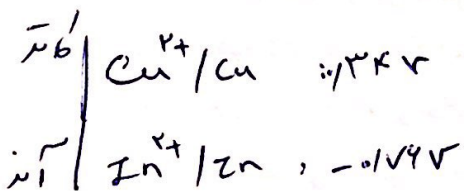 کاتد | Cu²⁺/Cu ۰/۳۴ v
آند | Zn²⁺/Zn , -۰/۷۶ v